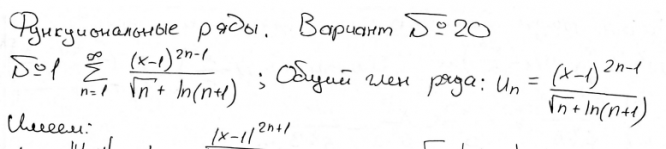 Функциональные ряды. Вариант №20
№1 \sum_{n=1}^{\infty} \frac{(x-1)^{2n-1}}{\sqrt{n}+ln(n+1)} ; Общий член ряда: u_n = \frac{(x-1)^{2n-1}}{\sqrt{n}+ln(n+1)}
Имеем:
|x-1|^{2n+1}